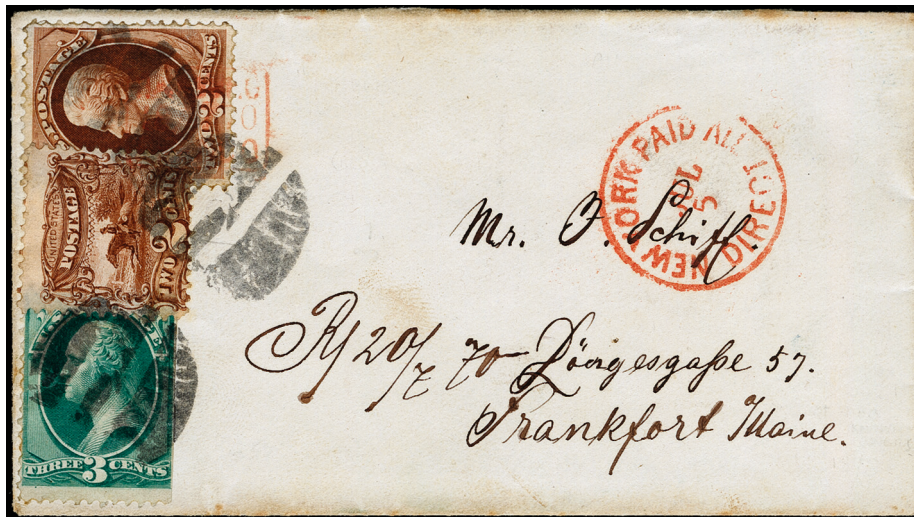 POSTAGE
TWO 2 CENTS
UNITED STATES
POSTAGE
TWO 2 CENTS
THREE 3 CENTS
NEW YORK PAID ALL DIRECT
JUL
5
Mr. J. Schiff.
20/7 70
57.
Frankfort Maine.